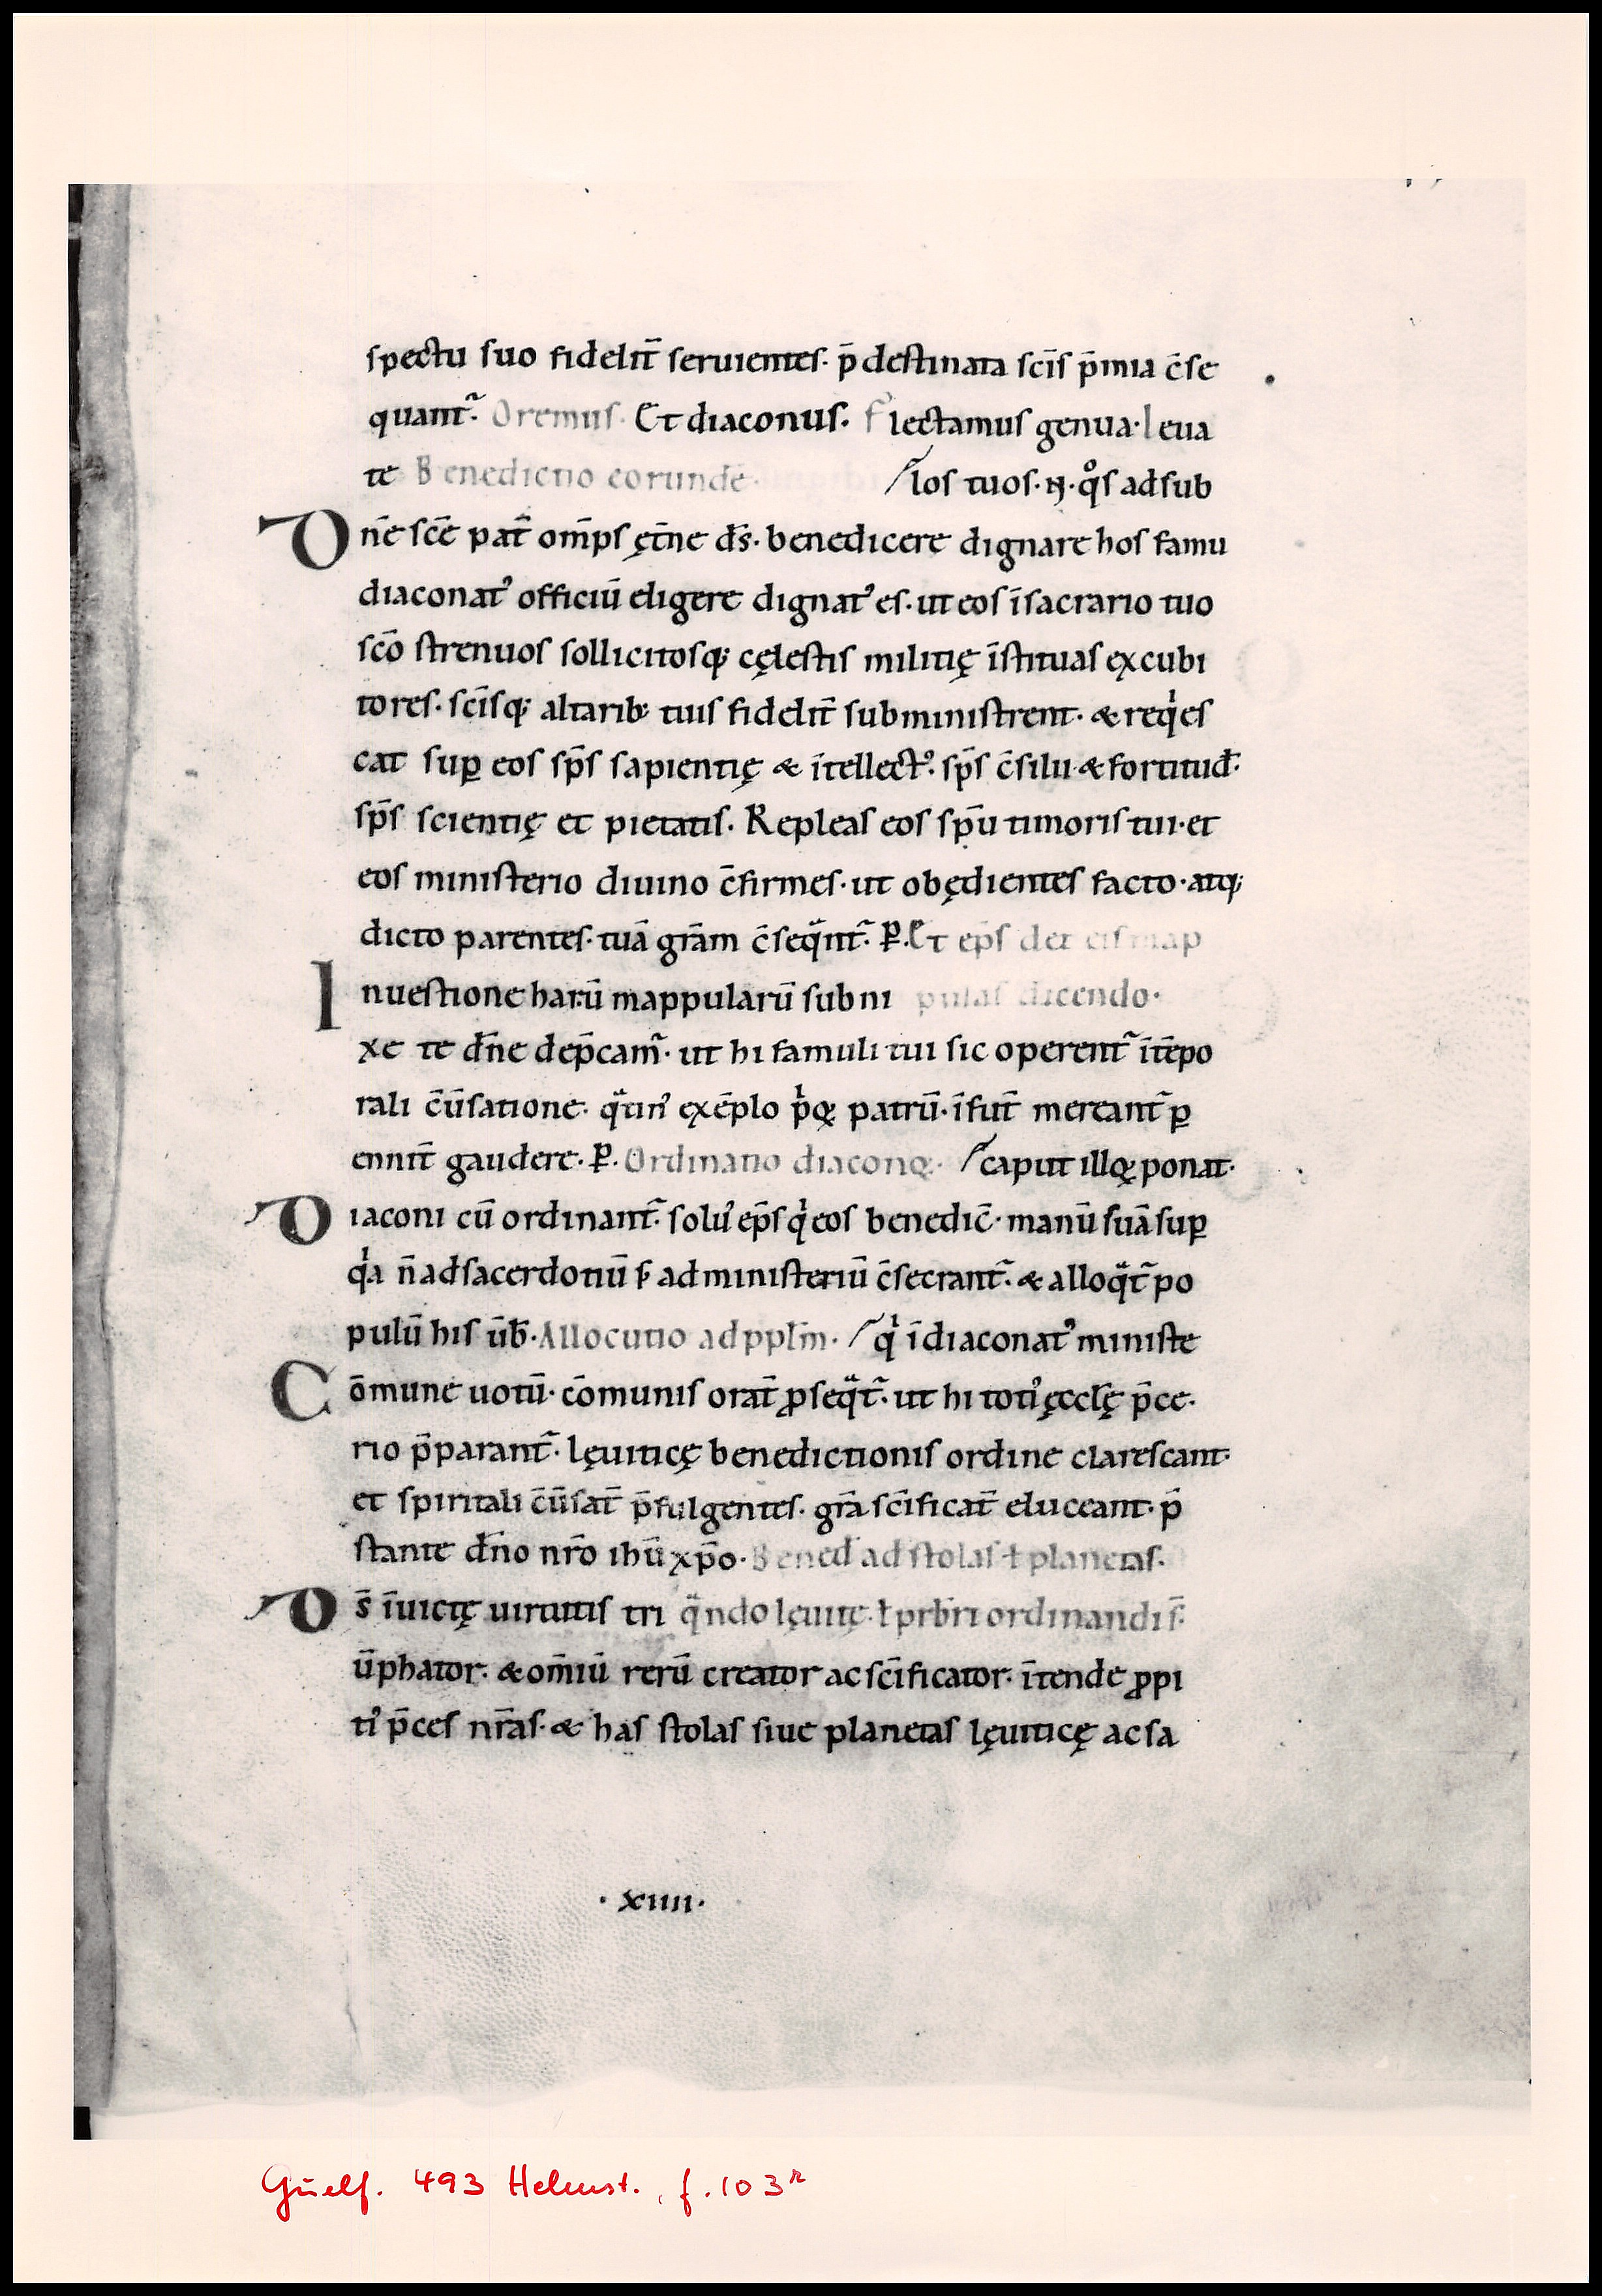 spectu suo fidelit̄ seruientes· p̄destinata sc̄is p̄mia c̄se
quant᷑· Oremus· Et diaconus· Flectamus genua· Leua
te Benedictio eorundē· los tuos· N· qͦs ad sub
Dn̄e sc̄e pat̄ om̄ps ęt̄ne d̄s· benedicere dignare hos famu
diaconatꝰ officiū eligere dignatꝰ es· ut eos īsacrario tuo
sc̄o strenuos sollicitosq; cęlestis militię īstituas excubi
tores· sc̄isq; altarib; tuis fidelit̄ subministrent· & reqͥes
cat suꝑ eos sp̄s sapientię & ītellectꝰ· sp̄s c̄silii & fortitud̄·
sp̄s scientię et pietatis· Repleas eos sp̄u timoris tui· et
eos ministerio diuino c̄firmes· ut obędientes facto· atq;
dicto parentes· tuā gr̄am c̄seqᷓnt᷑· P̲· Et ep̄s det eis map
Inuestione harū mappularū subni pulas dicendo·
xe te dn̄e dep̄cam᷑· ut hi famuli tui sic operent᷑ ītēpo
rali c̄ūsatione· qᷓtinꝰ exēplo pͥoꝝ patrū· īfut̄ mereant᷑ ꝑ
ennit̄ gaudere· P̲· Ordinatio diaconoꝝ· caput illoꝝ ponat·
Diaconi cū ordinant᷑· solꝰ ep̄s qͥ eos benedic̄· manū suā suꝑ
qͥa n̄ ad sacerdotiū s̄ ad ministeriū c̄secrant᷑· & alloqᷓt᷑ po
pulū his ūb̄· Allocutio ad ppl̄m· qͥ īdiaconatꝰ ministe
Cōmune uotū· cōmunis orat̄ ꝓseqᷓt᷑· ut hi totiꝰ ęccl̄ę p̄ce·
rio p̄parant᷑· lęuiticę benedictionis ordine clarescant·
et spiritali c̄ūsat̄ p̄fulgentes· gr̄a sc̄ificat̄ eluceant· p̄
stante dn̄o nr̄o ihū xp̄o· Bened̄ ad stolas ł planetas·
Ds̄ īuictę uirtutis tri qᷓndo lęuitę· ł prb̄ri ordinandi s̄·
ūphator· & om̄iū rerū creator ac sc̄ificator· ītende ꝓpi
tiꝰ p̄ces nr̄as· & has stolas siue planetas lęuiticę ac sa
· xiiii·
Guelf. 493 Helmst., f. 103ʳ